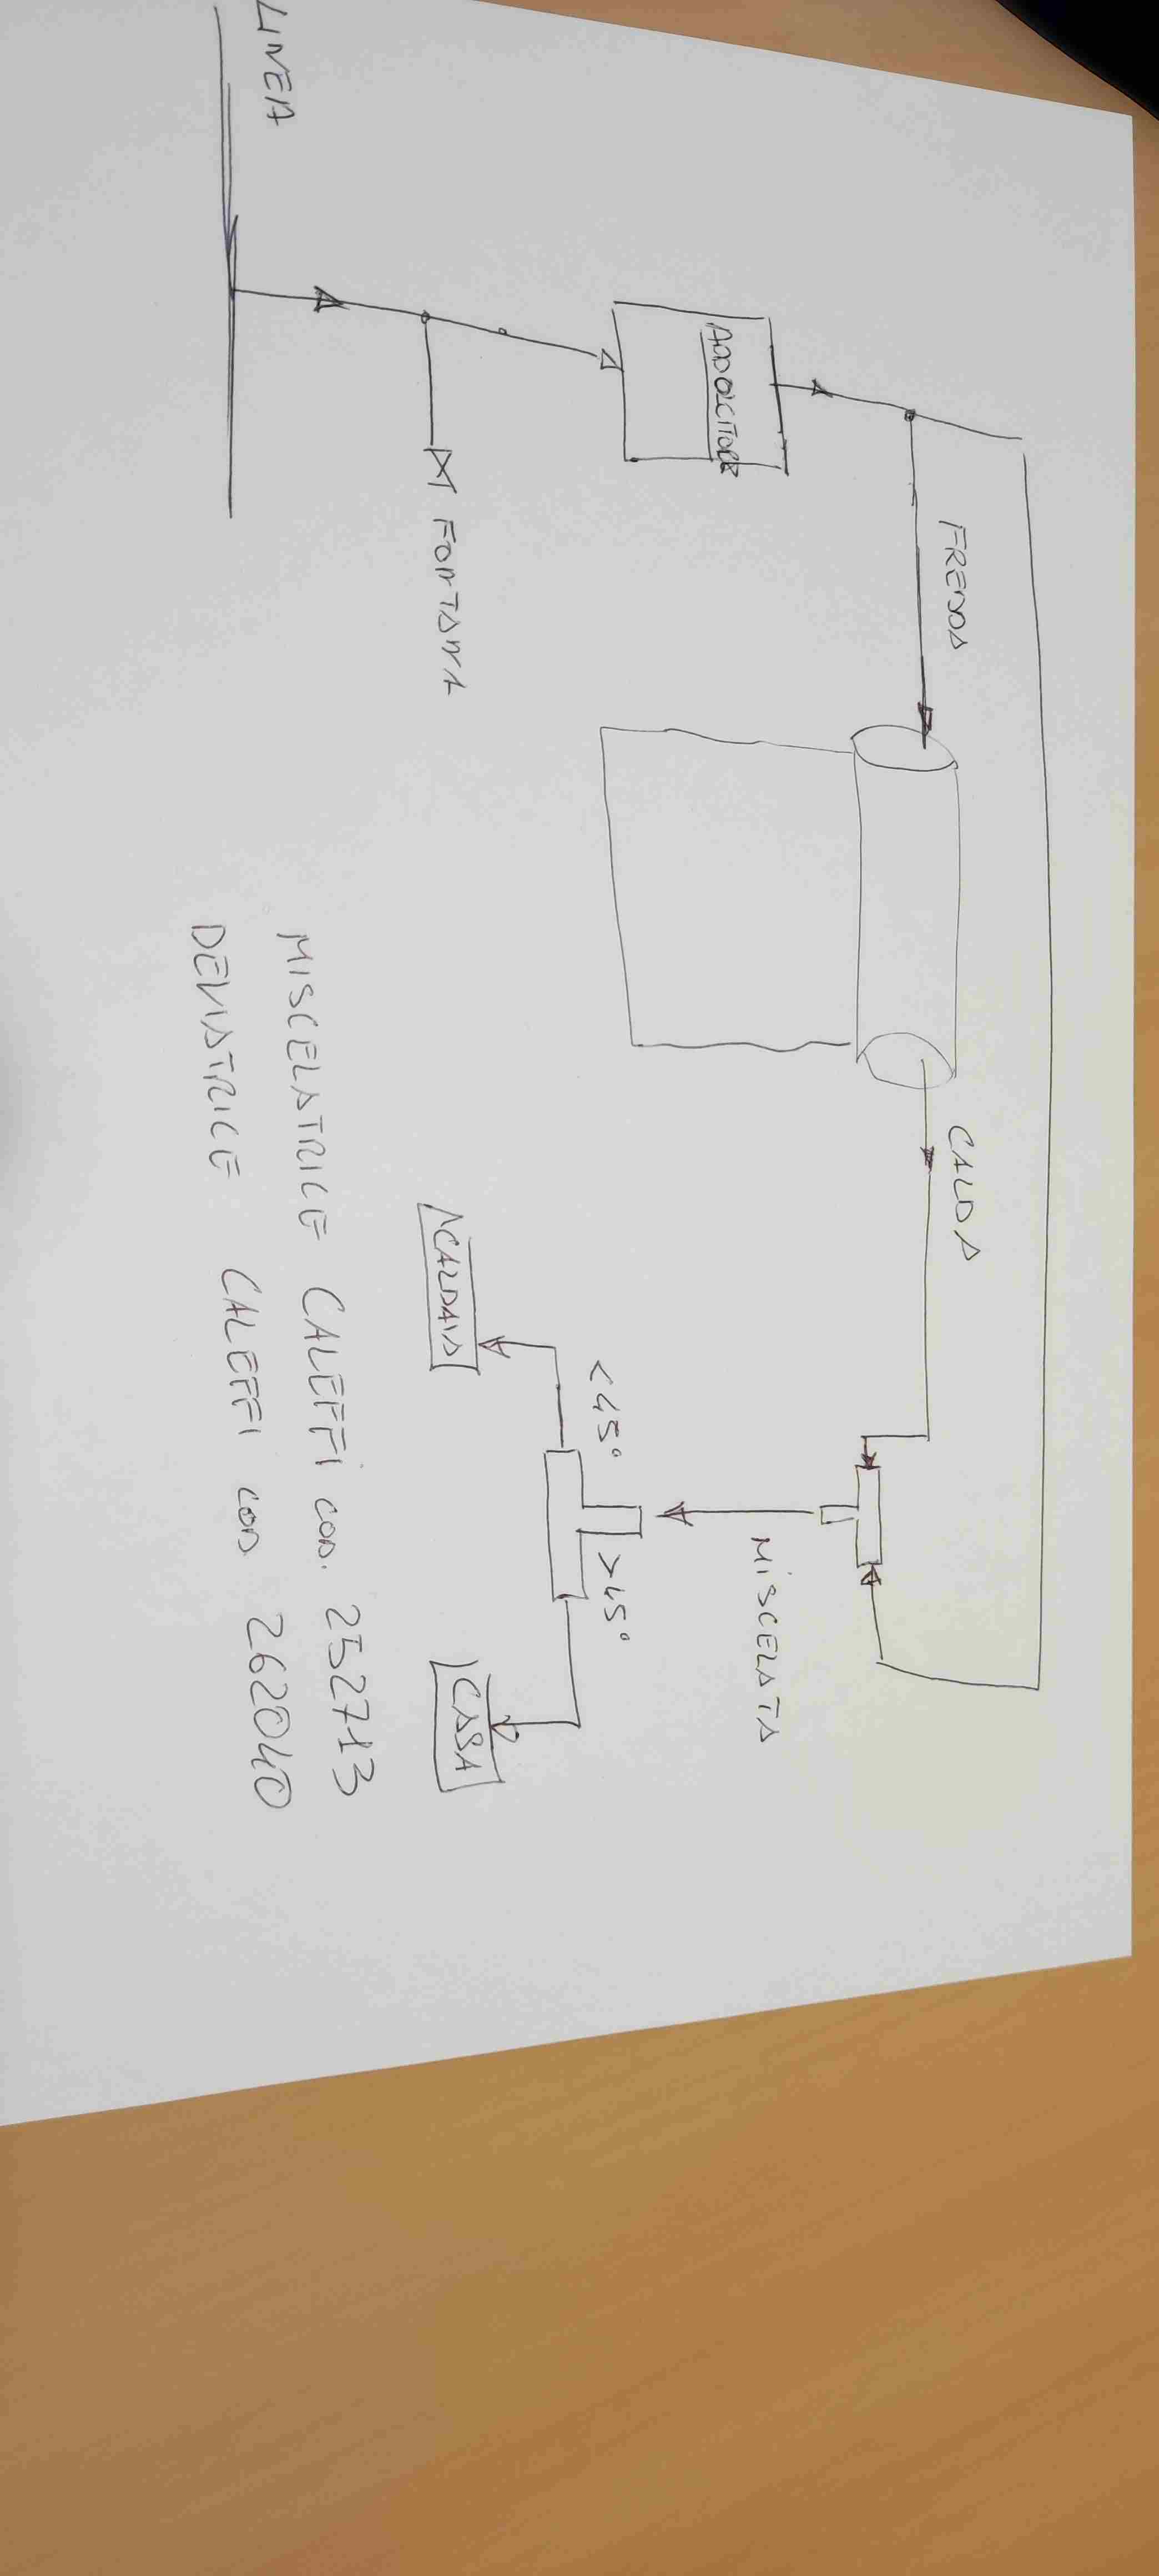 LINEA
ADDOLCITORE
FONTANA
FREDDA
CALDA
MISCELATA
<45°
>45°
CALDAIA
CASA
MISCELATRICE CALEFFI COD. 252713
DEVIATRICE CALEFFI COD 262040